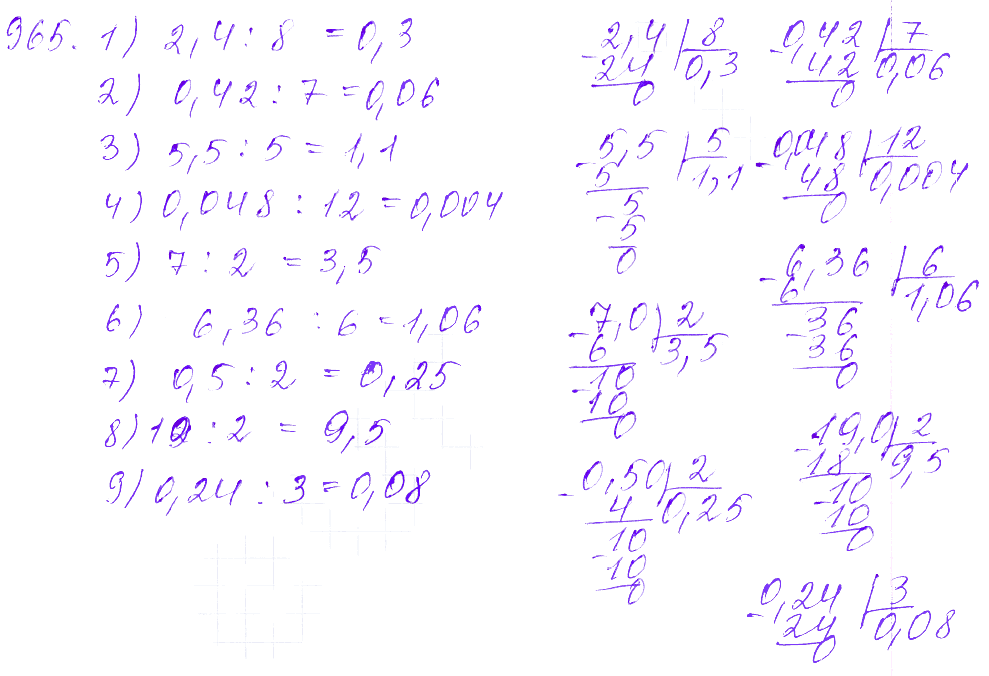 965. 1) 2,4 : 8 = 0,3
2) 0,42 : 7 = 0,06
3) 5,5 : 5 = 1,1
4) 0,048 : 12 = 0,004
5) 7 : 2 = 3,5
6) 6,36 : 6 = 1,06
7) 0,5 : 2 = 0,25
8) 19 : 2 = 9,5
9) 0,24 : 3 = 0,08
-2,4 | 8
24 0,3
0
-0,42 | 7
42 0,06
0
-5,5 | 5
5 1,1
-5
5
0
-0,048 | 12
48 0,004
0
-6,36 | 6
6 1,06
-36
36
0
-7,0 | 2
6 3,5
-10
10
0
-19,0 | 2
18 9,5
-10
10
0
-0,50 | 2
4 0,25
-10
10
0
-0,24 | 3
24 0,08
0